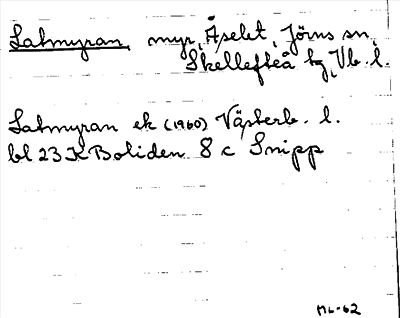 Latmyran, myr, Åselet, Jörns sn,
Skellefteå tg, Vb. l.
Latmyran ek (1960) Västerb. l.
bl 23 K Boliden 8 c Snipp
Mb-62